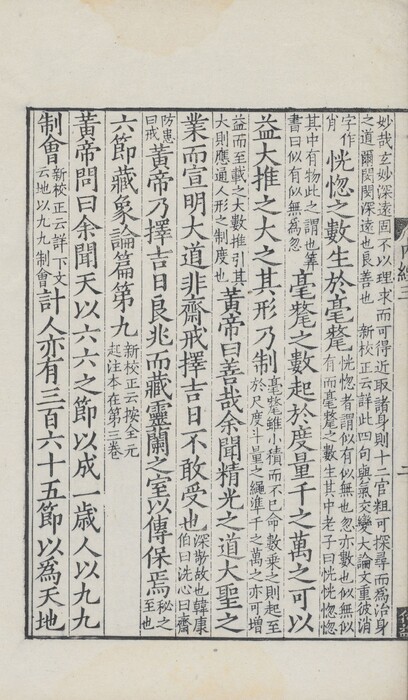 妙哉玄妙深遠固不以理求而可得近取諸身則十二官粗可探尋而爲治身
之道爾閔閔深遠也良善也 新校正云詳此四句與氣交變大論文重彼消
字作肖 恍惚之數生於毫氂 恍惚者謂似有似無也忽亦數也似無似有而毫氂之數生其中老子曰恍恍惚惚
其中有物此之謂也筭書曰似有似無爲忽 毫氂之數起於度量千之萬之可以
益大推之大之其形乃制 毫氂雖小積而不已命數乘之則起至於尺度斗量之繩準千之萬之亦可增
益而至載之大數推引其大則應通人形之制度也 黃帝曰善哉余聞精光之道大聖之
業而宣明大道非齋戒擇吉日不敢受也 深敬故也韓康伯曰洗心曰齊
防患曰戒 黃帝乃擇吉日良兆而藏靈蘭之室以傳保焉 秘之至也
六節藏象論篇第九 新校正云按全元起注本在第三卷
黃帝問曰余聞天以六六之節以成一歲人以九九
制會 新校正云詳下文云地以九九制會 計人亦有三百六十五節以爲天地